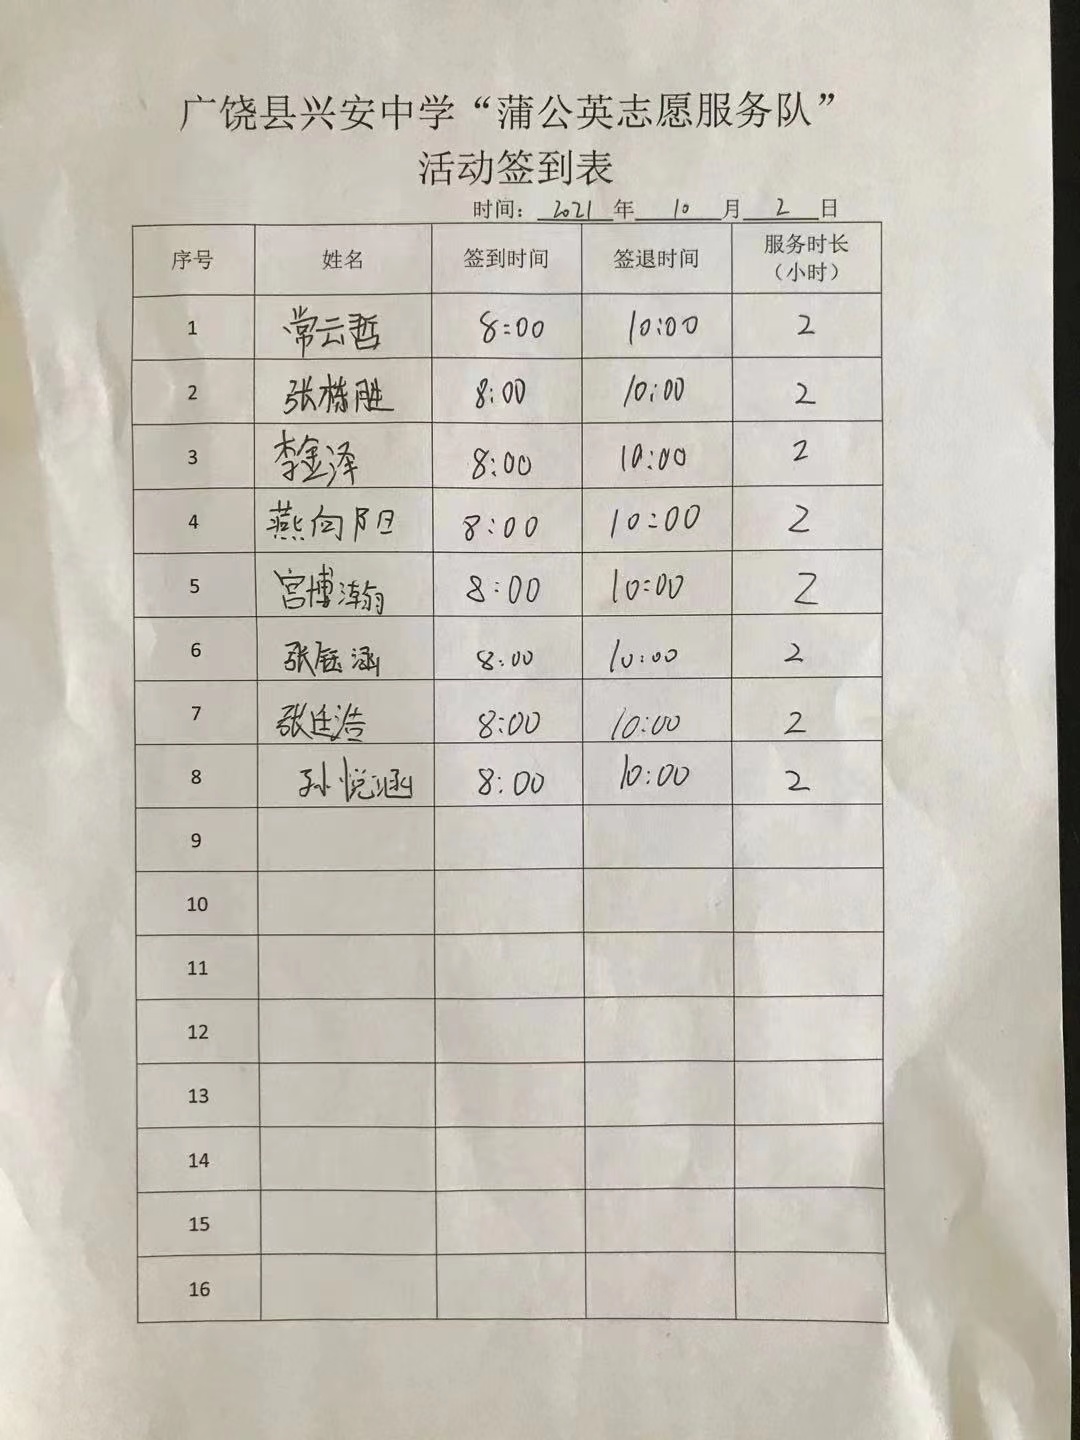 广饶县兴安中学“蒲公英志愿服务队”
活动签到表
时间：2021年10月2日
序号 姓名 签到时间 签退时间 服务时长（小时）
1 常云哲 8:00 10:00 2
2 张栋胜 8:00 10:00 2
3 李金泽 8:00 10:00 2
4 燕向阳 8:00 10:00 2
5 宫博瀚 8:00 10:00 2
6 张钰涵 8:00 10:00 2
7 张廷浩 8:00 10:00 2
8 孙悦涵 8:00 10:00 2
9
10
11
12
13
14
15
16